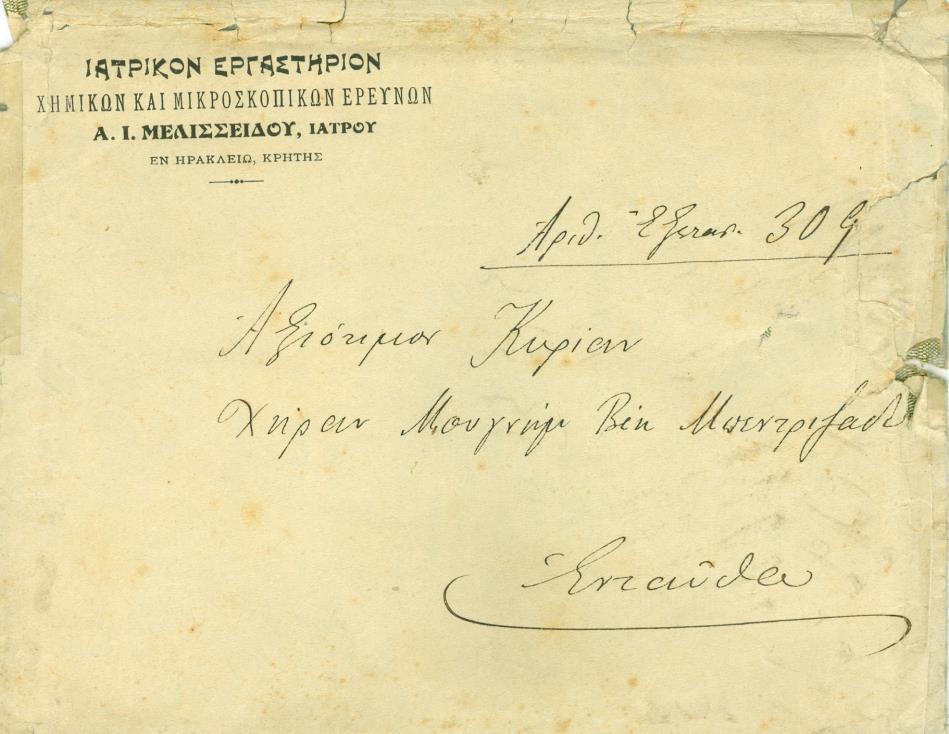 ΙΑΤΡΙΚΟΝ ΕΡΓΑΣΤΗΡΙΟΝ
ΧΗΜΙΚΩΝ ΚΑΙ ΜΙΚΡΟΣΚΟΠΙΚΩΝ ΕΡΕΥΝΩΝ
Α. Ι. ΜΕΛΙΣΣΕΙΔΟΥ, ΙΑΤΡΟΥ
ΕΝ ΗΡΑΚΛΕΙΩ, ΚΡΗΤΗΣ
Ἀριθ. Ἐξετασ. 309
Ἀξιότιμον Κυρίαν
Χήραν Βέη
Ἐνταῦθα